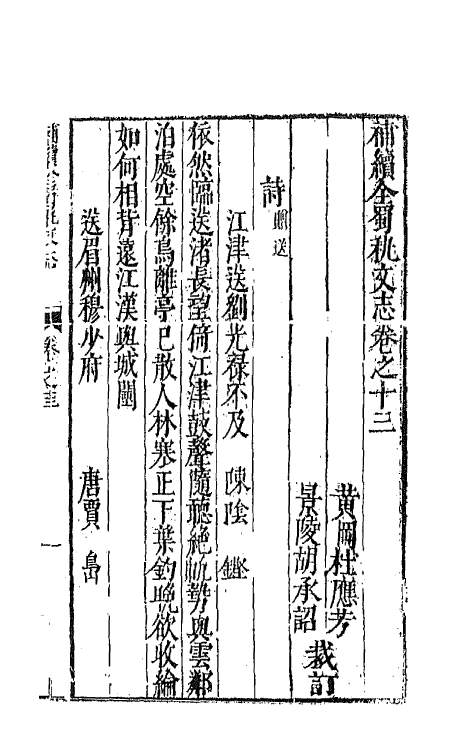 補續全蜀秇文志卷之十三
黃岡杜應芳
景陵胡承詔 裁訂
詩 贈送
江津送劉光祿不及 陳陰鏗
依然臨送渚長望倚江津鼓聲隨聽絶帆勢與雲鄰
泊處空餘鳥離亭已散人林寒正下葉釣晚欲收綸
如何相背遠江漢與城闉
送眉州穆少府 唐賈島
補續全蜀秇文志 卷之十三 一